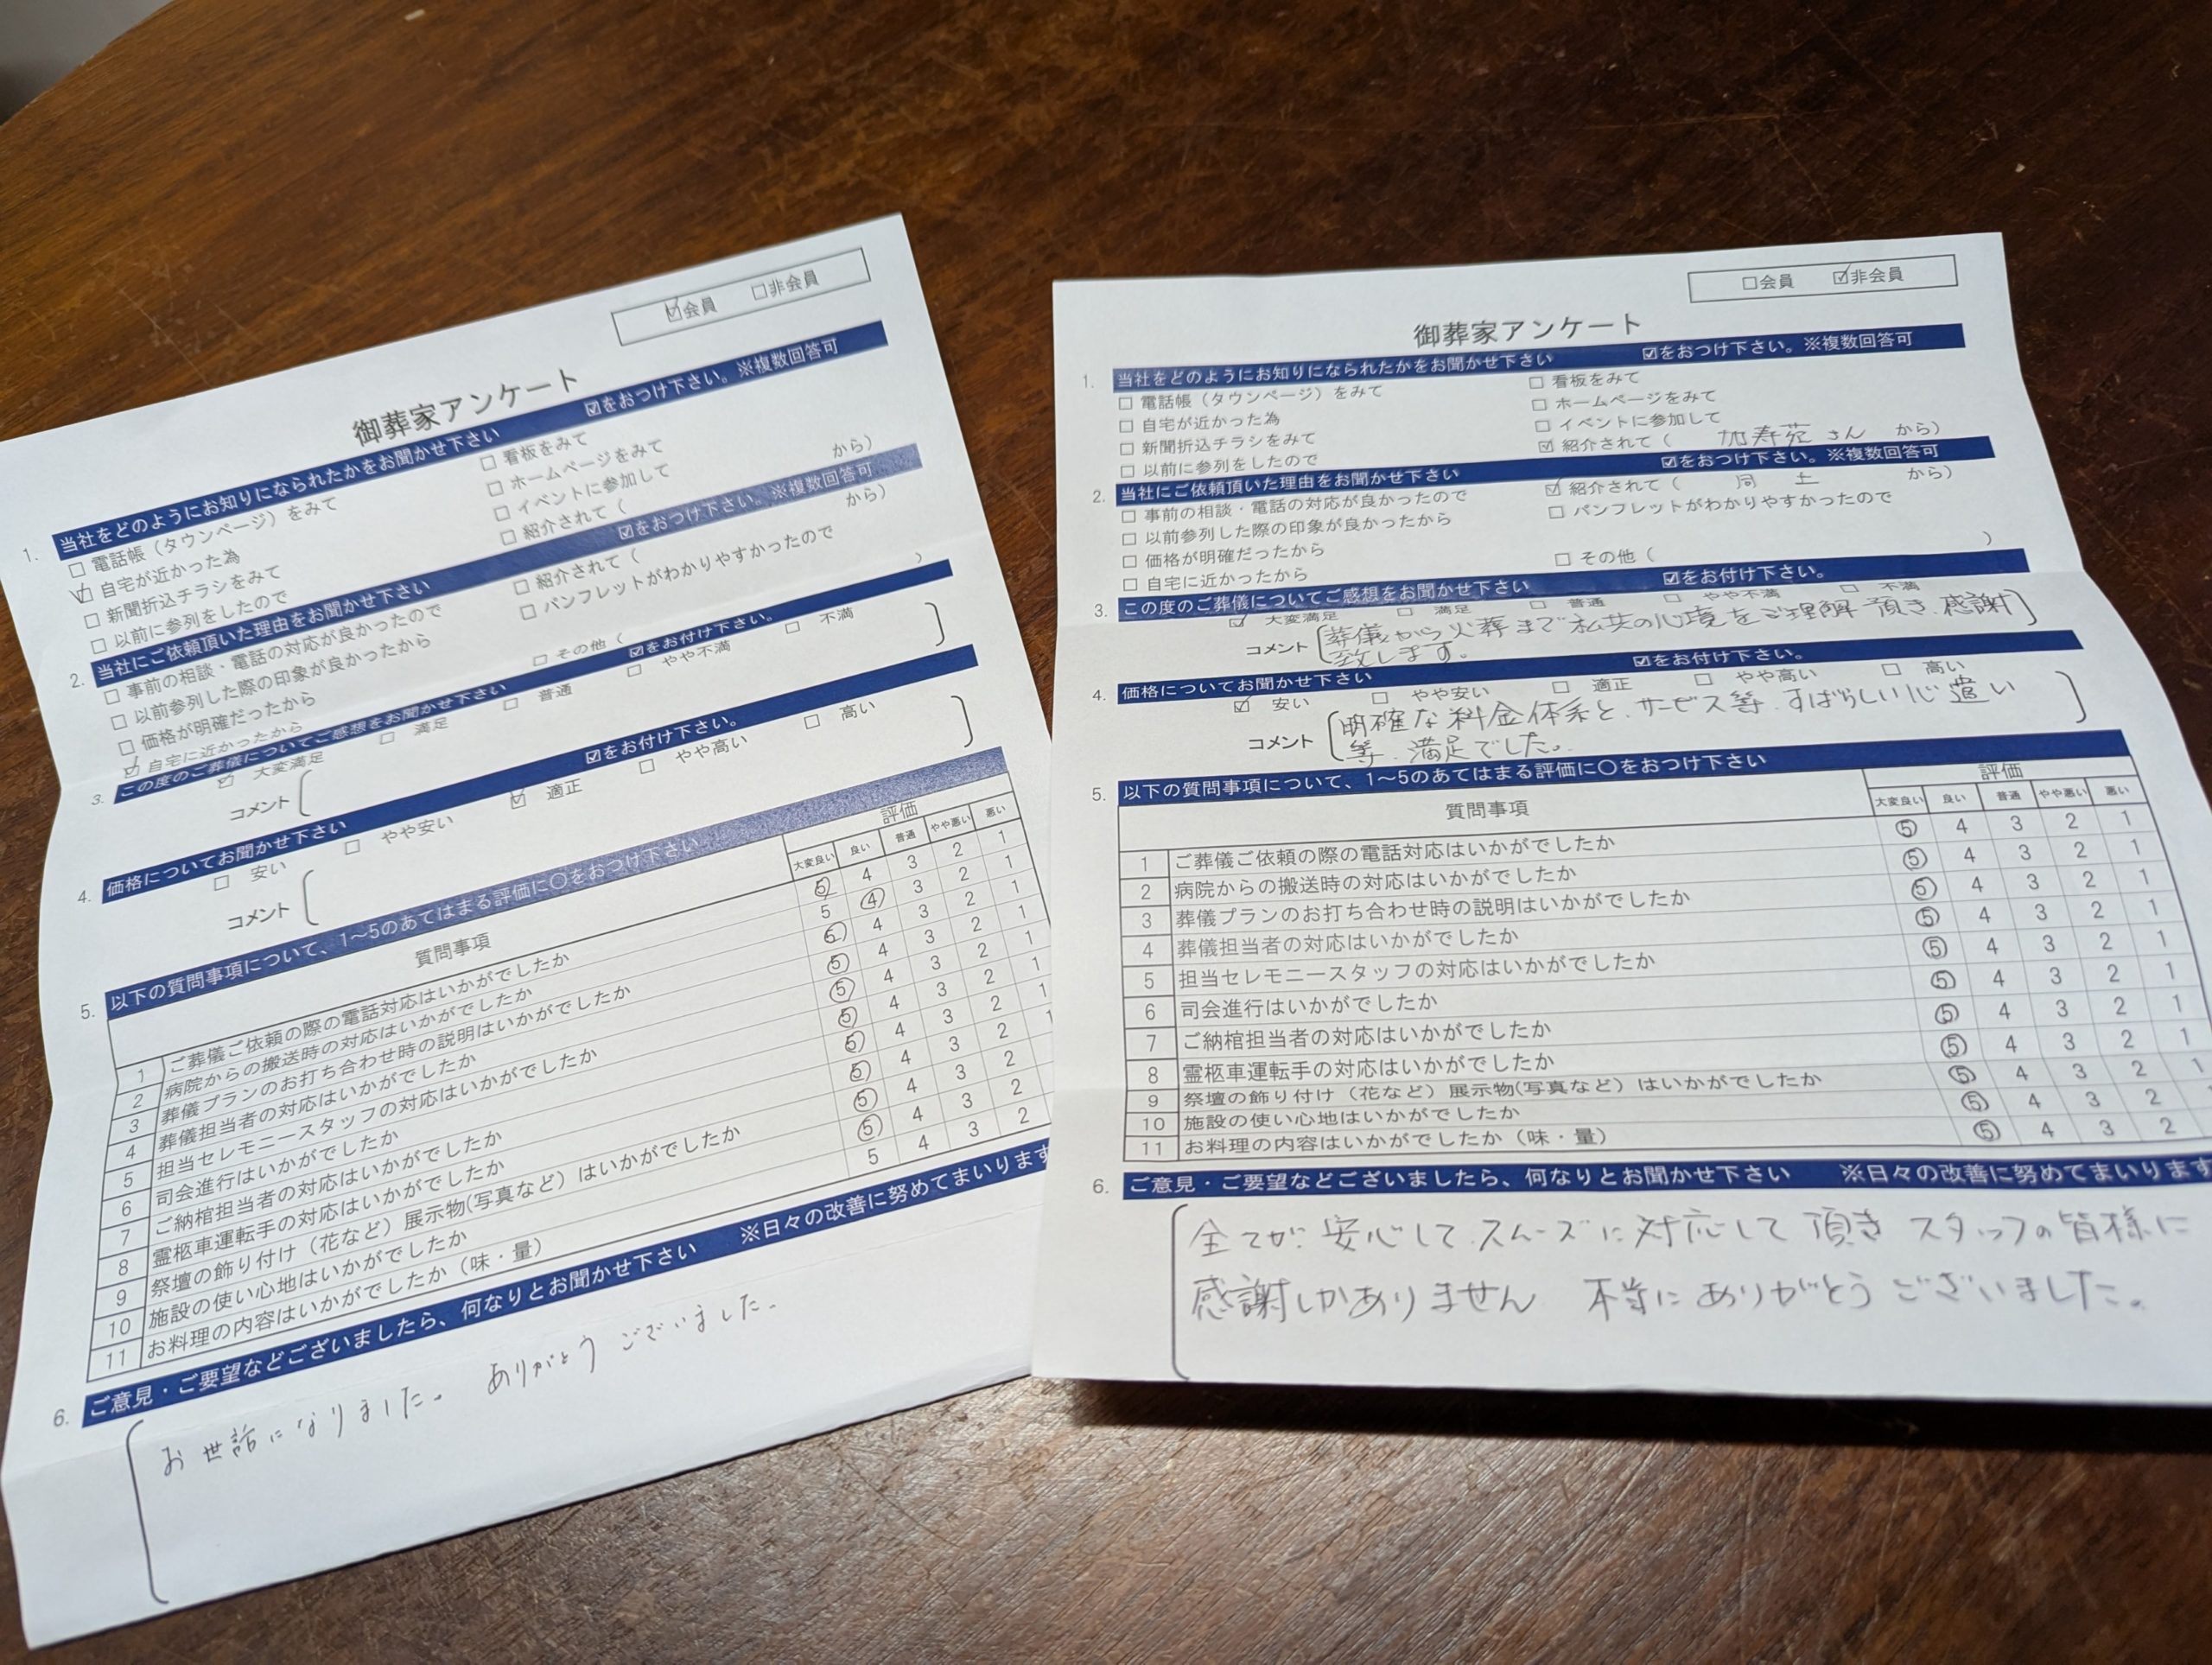 ☑会員 □非会員
御葬家アンケート
1. 当社をどのようにお知りになられたかをお聞かせ下さい ☑をおつけ下さい。※複数回答可
□ 電話帳（タウンページ）をみて □ 看板をみて
☑ 自宅が近かった為 □ ホームページをみて
□ 新聞折込チラシをみて □ イベントに参加して
□ 以前に参列をしたので □ 紹介されて（ から）
2. 当社にご依頼頂いた理由をお聞かせ下さい ☑をおつけ下さい。※複数回答可
□ 事前の相談・電話の対応が良かったので □ 紹介されて（ から）
□ 以前参列した際の印象が良かったから □ パンフレットがわかりやすかったので
□ 価格が明確だったから
☑ 自宅に近かったから □ その他（ ）
3. この度のご葬儀についてご感想をお聞かせ下さい ☑をお付け下さい。
☑ 大変満足 □ 満足 □ 普通 □ やや不満 □ 不満
コメント
4. 価格についてお聞かせ下さい ☑をお付け下さい。
□ 安い □ やや安い ☑ 適正 □ やや高い □ 高い
コメント
5. 以下の質問事項について、1～5のあてはまる評価に○をおつけ下さい
質問事項 評価
大変良い 良い 普通 やや悪い 悪い
1 ご葬儀ご依頼の際の電話対応はいかがでしたか ⑤ 4 3 2 1
2 病院からの搬送時の対応はいかがでしたか 5 ④ 3 2 1
3 葬儀プランのお打ち合わせ時の説明はいかがでしたか ⑤ 4 3 2 1
4 葬儀担当者の対応はいかがでしたか ⑤ 4 3 2 1
5 担当セレモニースタッフの対応はいかがでしたか ⑤ 4 3 2 1
6 司会進行はいかがでしたか ⑤ 4 3 2 1
7 ご納棺担当者の対応はいかがでしたか ⑤ 4 3 2 1
8 霊柩車運転手の対応はいかがでしたか ⑤ 4 3 2 1
9 祭壇の飾り付け（花など）展示物(写真など）はいかがでしたか ⑤ 4 3 2
10 施設の使い心地はいかがでしたか ⑤ 4 3 2
11 お料理の内容はいかがでしたか（味・量） 5 4 3 2
6. ご意見・ご要望などございましたら、何なりとお聞かせ下さい ※日々の改善に努めてまいります
お世話になりました。 ありがとう ございました。
□会員 ☑非会員
御葬家アンケート
1. 当社をどのようにお知りになられたかをお聞かせ下さい ☑をおつけ下さい。※複数回答可
□ 電話帳（タウンページ）をみて □ 看板をみて
□ 自宅が近かった為 □ ホームページをみて
□ 新聞折込チラシをみて □ イベントに参加して
□ 以前に参列をしたので ☑ 紹介されて（ 加寿苑さん から）
2. 当社にご依頼頂いた理由をお聞かせ下さい ☑をおつけ下さい。※複数回答可
□ 事前の相談・電話の対応が良かったので ☑ 紹介されて（ 同 上 から）
□ 以前参列した際の印象が良かったから □ パンフレットがわかりやすかったので
□ 価格が明確だったから
□ 自宅に近かったから □ その他（ ）
3. この度のご葬儀についてご感想をお聞かせ下さい ☑をお付け下さい。
☑ 大変満足 □ 満足 □ 普通 □ やや不満 □ 不満
コメント 葬儀から火葬まで私共の心境をご理解頂き、感謝
致します。
4. 価格についてお聞かせ下さい ☑をお付け下さい。
☑ 安い □ やや安い □ 適正 □ やや高い □ 高い
コメント 明確な料金体系と、サービス等、すばらしい心遣い
等、満足でした。
5. 以下の質問事項について、1～5のあてはまる評価に○をおつけ下さい
質問事項 評価
大変良い 良い 普通 やや悪い 悪い
1 ご葬儀ご依頼の際の電話対応はいかがでしたか ⑤ 4 3 2 1
2 病院からの搬送時の対応はいかがでしたか ⑤ 4 3 2 1
3 葬儀プランのお打ち合わせ時の説明はいかがでしたか ⑤ 4 3 2 1
4 葬儀担当者の対応はいかがでしたか ⑤ 4 3 2 1
5 担当セレモニースタッフの対応はいかがでしたか ⑤ 4 3 2 1
6 司会進行はいかがでしたか ⑤ 4 3 2 1
7 ご納棺担当者の対応はいかがでしたか ⑤ 4 3 2 1
8 霊柩車運転手の対応はいかがでしたか ⑤ 4 3 2 1
9 祭壇の飾り付け（花など）展示物(写真など）はいかがでしたか ⑤ 4 3 2 1
10 施設の使い心地はいかがでしたか ⑤ 4 3 2
11 お料理の内容はいかがでしたか（味・量） ⑤ 4 3 2
6. ご意見・ご要望などございましたら、何なりとお聞かせ下さい ※日々の改善に努めてまいります
全てが安心して、スムーズに対応して頂き スタッフの皆様に
感謝しかありません 本当にありがとうございました。